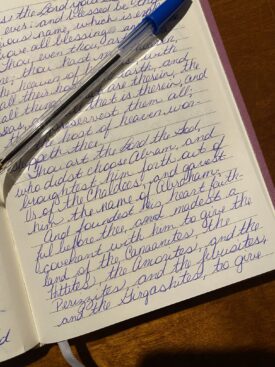 is the Lord your
ever: and blessed be thy
ious name, which is
ove all blessing a
Thou, even thou, art
ne; thou hast made
he heaven of with
all their hos earth, and
all things are therein, the
seas, that is therein, and
preservest them all;
the host of heaven wor-
shippeth thee.
Thou art the Lord the God,
who didst choose Abram, and
broughtest him forth out of
Ur of the Chaldees, and gavest
him the name of Abraham;
And foundest his heart faith-
ful before thee, and madest a
covenant with him to give the
land of the Canaanites, the
Hittites, the Amorites, and the
Perizzites, and the Jebusites,
and the Girgashites, to give
d